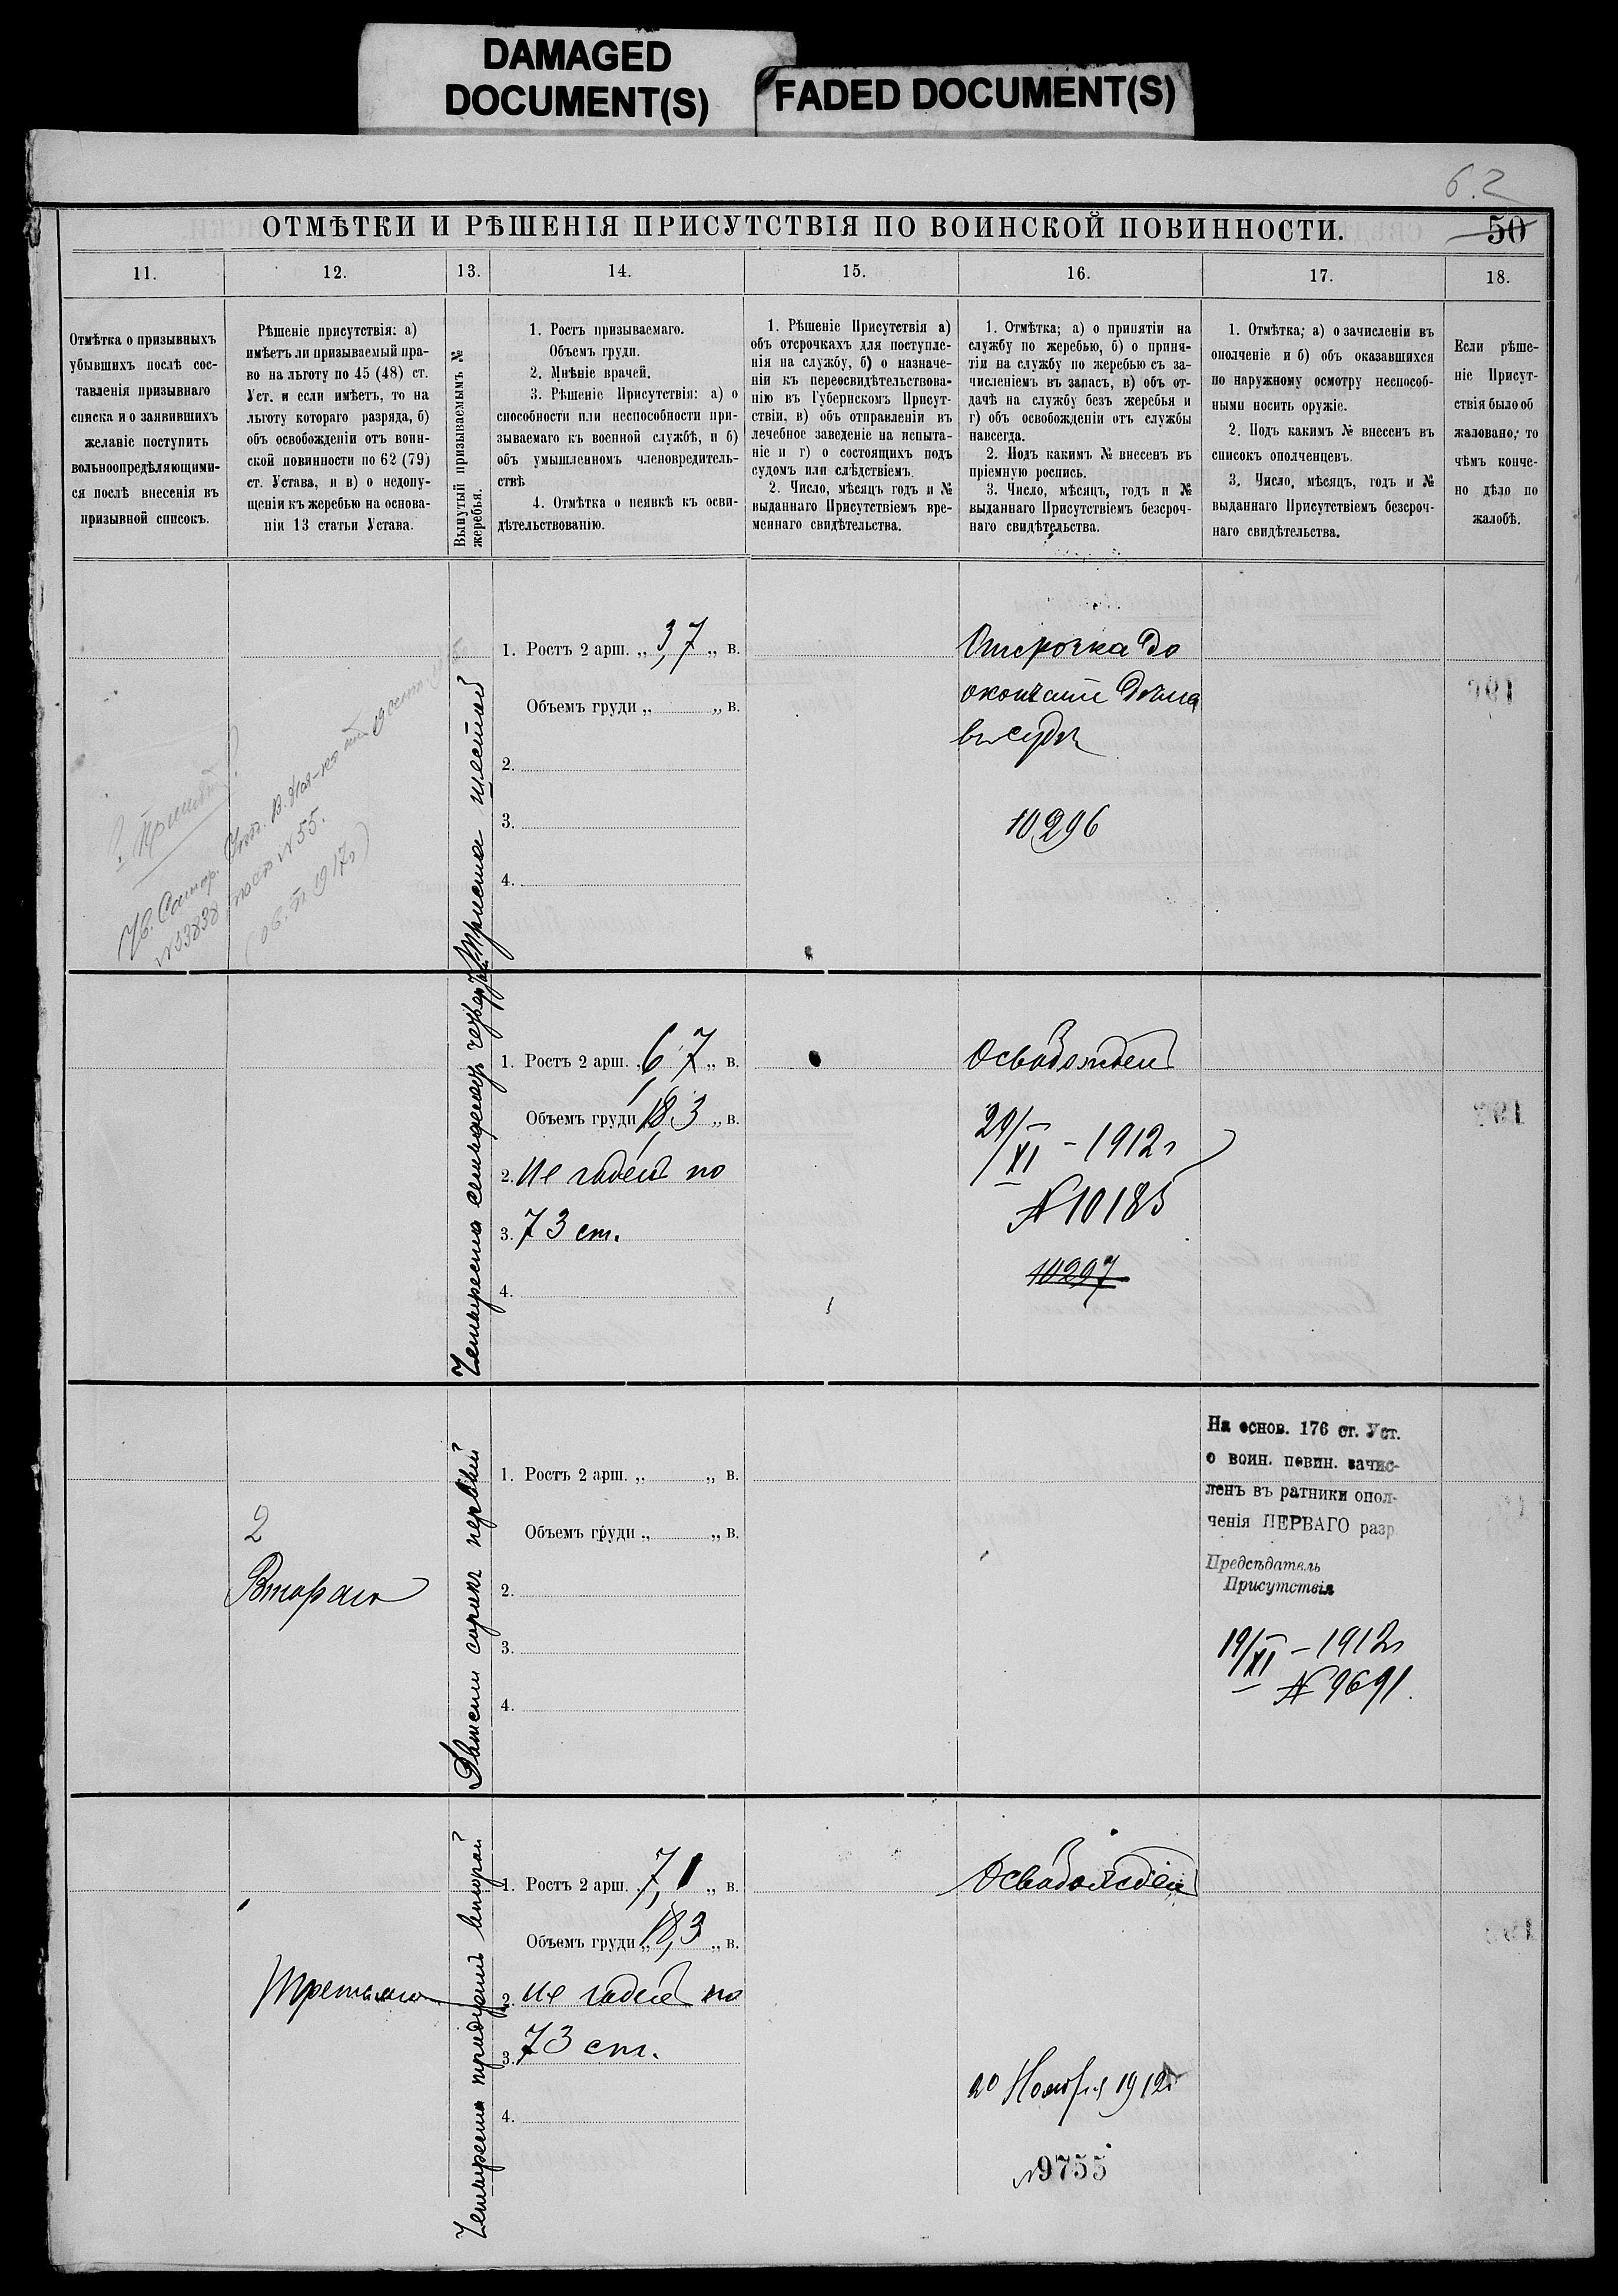 DAMAGED
DOCUMENT(S)
FADED DOCUMENT(S)
6.2
ОТМѢТКИ И РѢШЕНІЯ ПРИСУТСТВІЯ ПО ВОИНСКОЙ ПОВИННОСТИ.
50
11.
12.
13.
14.
15.
16.
17.
18.
Отмѣтка о призывныхъ
убывшихъ послѣ сос-
тавленія призывнаго
списка и о заявившихъ
желаніе поступить
вольноопредѣляющими-
ся послѣ внесенія въ
призывной списокъ.
Рѣшеніе присутствія: а)
имѣетъ ли призываемый пра-
во на льготу по 45 (48) ст.
Уст. и если имѣетъ, то на
льготу котораго разряда, б)
объ освобожденіи отъ воин-
ской повинности по 62 (79)
ст. Устава, и в) о недопу-
щеніи къ жеребью на основа-
ніи 13 статьи Устава.
Вынутый призываемымъ №
жеребья.
1. Ростъ призываемаго.
Объемъ груди.
2. Мнѣніе врачей.
3. Рѣшеніе Присутствія: а) о
способности или неспособности при-
зываемаго къ военной службѣ, и б)
объ умышленномъ членовредитель-
ствѣ
4. Отмѣтка о неявкѣ къ осви-
дѣтельствованію.
1. Рѣшеніе Присутствія а)
объ отсрочкахъ для поступле-
нія на службу, б) о назначе-
ніи къ переосвидѣтельствова-
нію въ Губернскомъ Присут-
ствіи, в) объ отправленіи въ
лечебное заведеніе на испыта-
ніе и г) о состоящихъ подъ
судомъ или слѣдствіемъ.
2. Число, мѣсяцъ годъ и №
выданнаго Присутствіемъ вре-
меннаго свидѣтельства.
1. Отмѣтка; а) о принятіи на
службу по жеребью, б) о приня-
тіи на службу по жеребью съ за-
численіемъ въ запасъ, в) объ от-
дачѣ на службу безъ жеребья и
г) объ освобожденіи отъ службы
навсегда.
2. Подъ какимъ № внесенъ въ
пріемную роспись.
3. Число, мѣсяцъ, годъ и №
выданнаго Присутствіемъ безсроч-
наго свидѣтельства.
1. Отмѣтка; а) о зачисленіи въ
ополченіе и б) объ оказавшихся
по наружному осмотру неспособ-
ными носить оружіе.
2. Подъ какимъ № внесенъ въ
списокъ ополченцевъ.
3. Число, мѣсяцъ, годъ и №
выданнаго Присутствіемъ безсроч-
наго свидѣтельства.
Если рѣше-
ніе Присут-
ствія было об
жаловано; то
чѣмъ конче-
но дѣло по
жалобѣ.
№ 33838 № 55.
1917г)
Триста шестой
1. Ростъ 2 арш. „ 3,7 „ в.
Объемъ груди „ „ в.
2.
3.
4.
Отсрочка до
окончанія дѣла
въ судѣ
10296
Четыреста семьдесятъ четвертый
1. Ростъ 2 арш. „ 6,7 „ в.
Объемъ груди 18,3 „ в.
2. Не годенъ по
3. 73 ст.
4.
Освобожденъ
29/XI – 1912г
№ 10185
10297
2
Второго
Двѣсти сорокъ первый
1. Ростъ 2 арш. „ „ в.
Объемъ груди „ „ в.
2.
3.
4.
На основ. 176 ст. Уст.
о воин. повин. зачис-
ленъ въ ратники опол-
ченія ПЕРВАГО разр.
Предсѣдатель
Присутствія
19/XI – 1912г
№ 9691.
Третьяго
Четыреста тридцать второй
1. Ростъ 2 арш. 7,1 „ в.
Объемъ груди „ 18,3 „ в.
2. Не годенъ по
3. 73 ст.
4.
Освобожденъ
20 Ноября 1912г
№ 9755